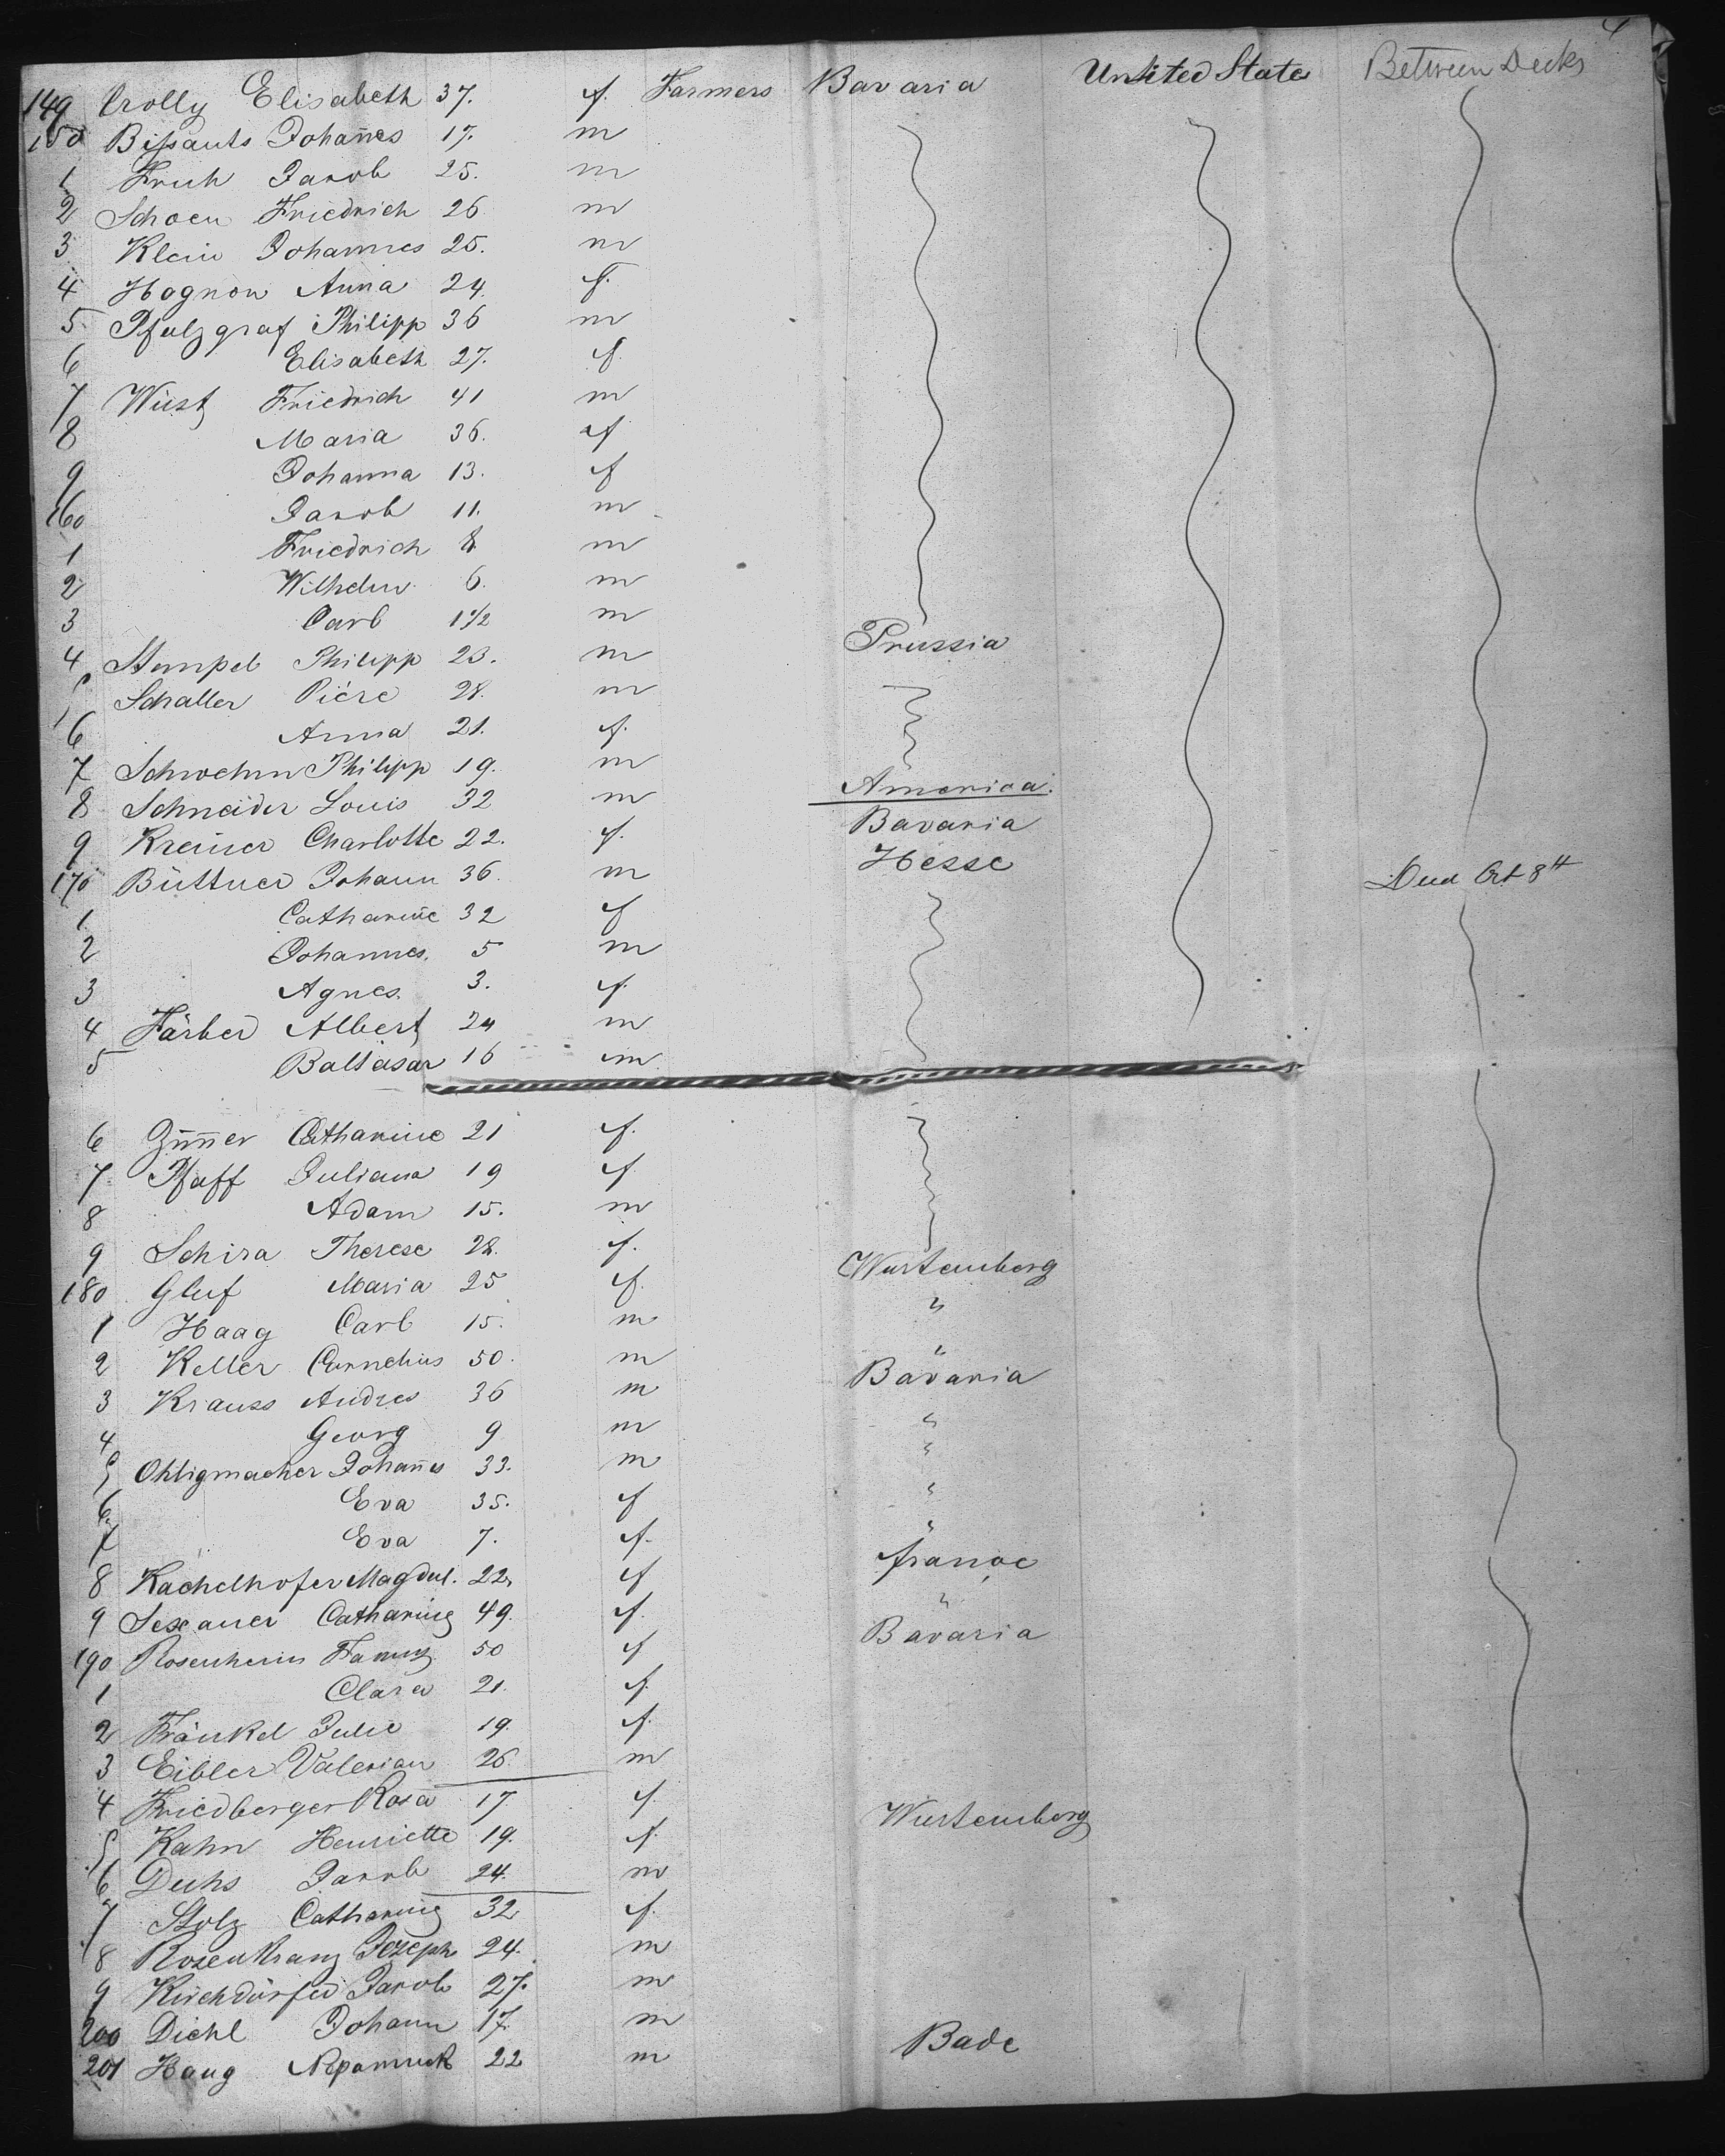 4
149 Crolly Elisabeth 37. f. Farmers Bavaria United State Between Decks
150 Bißants Johan̄es 17. m
1 Fruh Jakob 25. m
2 Schoen Friedrich 26 m
3 Klein Johannes 25. m
4 Hognon Anna 24. f.
5 Pfalzgraf Philipp 36 m
6 Elisabeth 27. f.
7 Wüst Friedrich 41 m
8 Maria 36. f
9 Johanna 13. f
160 Jakob 11. m
1 Friedrich 8 m
2 Wilhelm 6. m
3 Carl 1 1/2 m
4 Stempel Philipp 23. m Prussia
5 Schaller Piére 28. m
6 Anna 21. f.
7 Schwehm Philipp 19. m
8 Schneider Louis 32 m America.
9 Kreiner Charlotte 22. f. Bavaria
170 Büttner Johann 36. m Hesse Died Oct 8th
1 Catharine 32 f
2 Johannes. 5 m
3 Agnes. 3. f.
4 Färber Albert 24 m
5 Baltasar 16 m
6 Zim̄er Catharine 21 f.
7 Pfaff Juliana 19 f
8 Adam 15. m
9 Schira Therese 28. f.
180 Gluf Maria 25 f. Wurtemberg
1 Haag Carl 15. m "
2 Keller Cornelius 50. m "
3 Krauss Andres 36 m Bavaria
4 Georg 9 m "
5 Ohligmacher Johan̄es 33. m "
6 Eva 35. f "
7 Eva 7. f. "
8 Kachelhofer Magdal. 22. f france
9 Sexauer Catharine 49. f. "
190 Rosenheim Fanny 50 f Bavaria
1 Clara 21. f.
2 Fränkel Julie 19. f.
3 Eibler Valerian 26. m
4 Friedberger Rosa 17 f
5 Kahn Henriette 19. f. Wurtemberg
6 Duhs Jakob 24. m
7 Stolz Catharine 32 f.
8 Rosenkranz Joseph 24. m
9 Kirchdörfer Jakob 27. m
200 Diehl Johann 17. m
201 Haug Nepomuk 22 m Bade